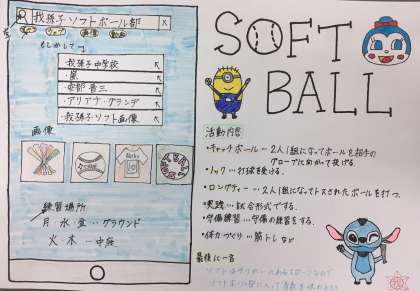 我孫子ソフトボール部 x
画像
動画
もしかして
・我孫子中学校
・嵐
・安部晋三
・アリアナ・グランデ
・我孫子ソフト画像
画像
練習場所
月・水・金…グラウンド
火・木 …中庭
SOFT
BALL
活動内容
・キャッチボール…2人1組になってボールを相手の
グローブに向かって投げる。
・ノック…打球を受ける。
・ロングティー…2人1組になってトスされたボールを打つ。
・実践…試合形式でする。
・守備練習…守備の練習をする。
・体力づくり…筋トレなど
最後に一言